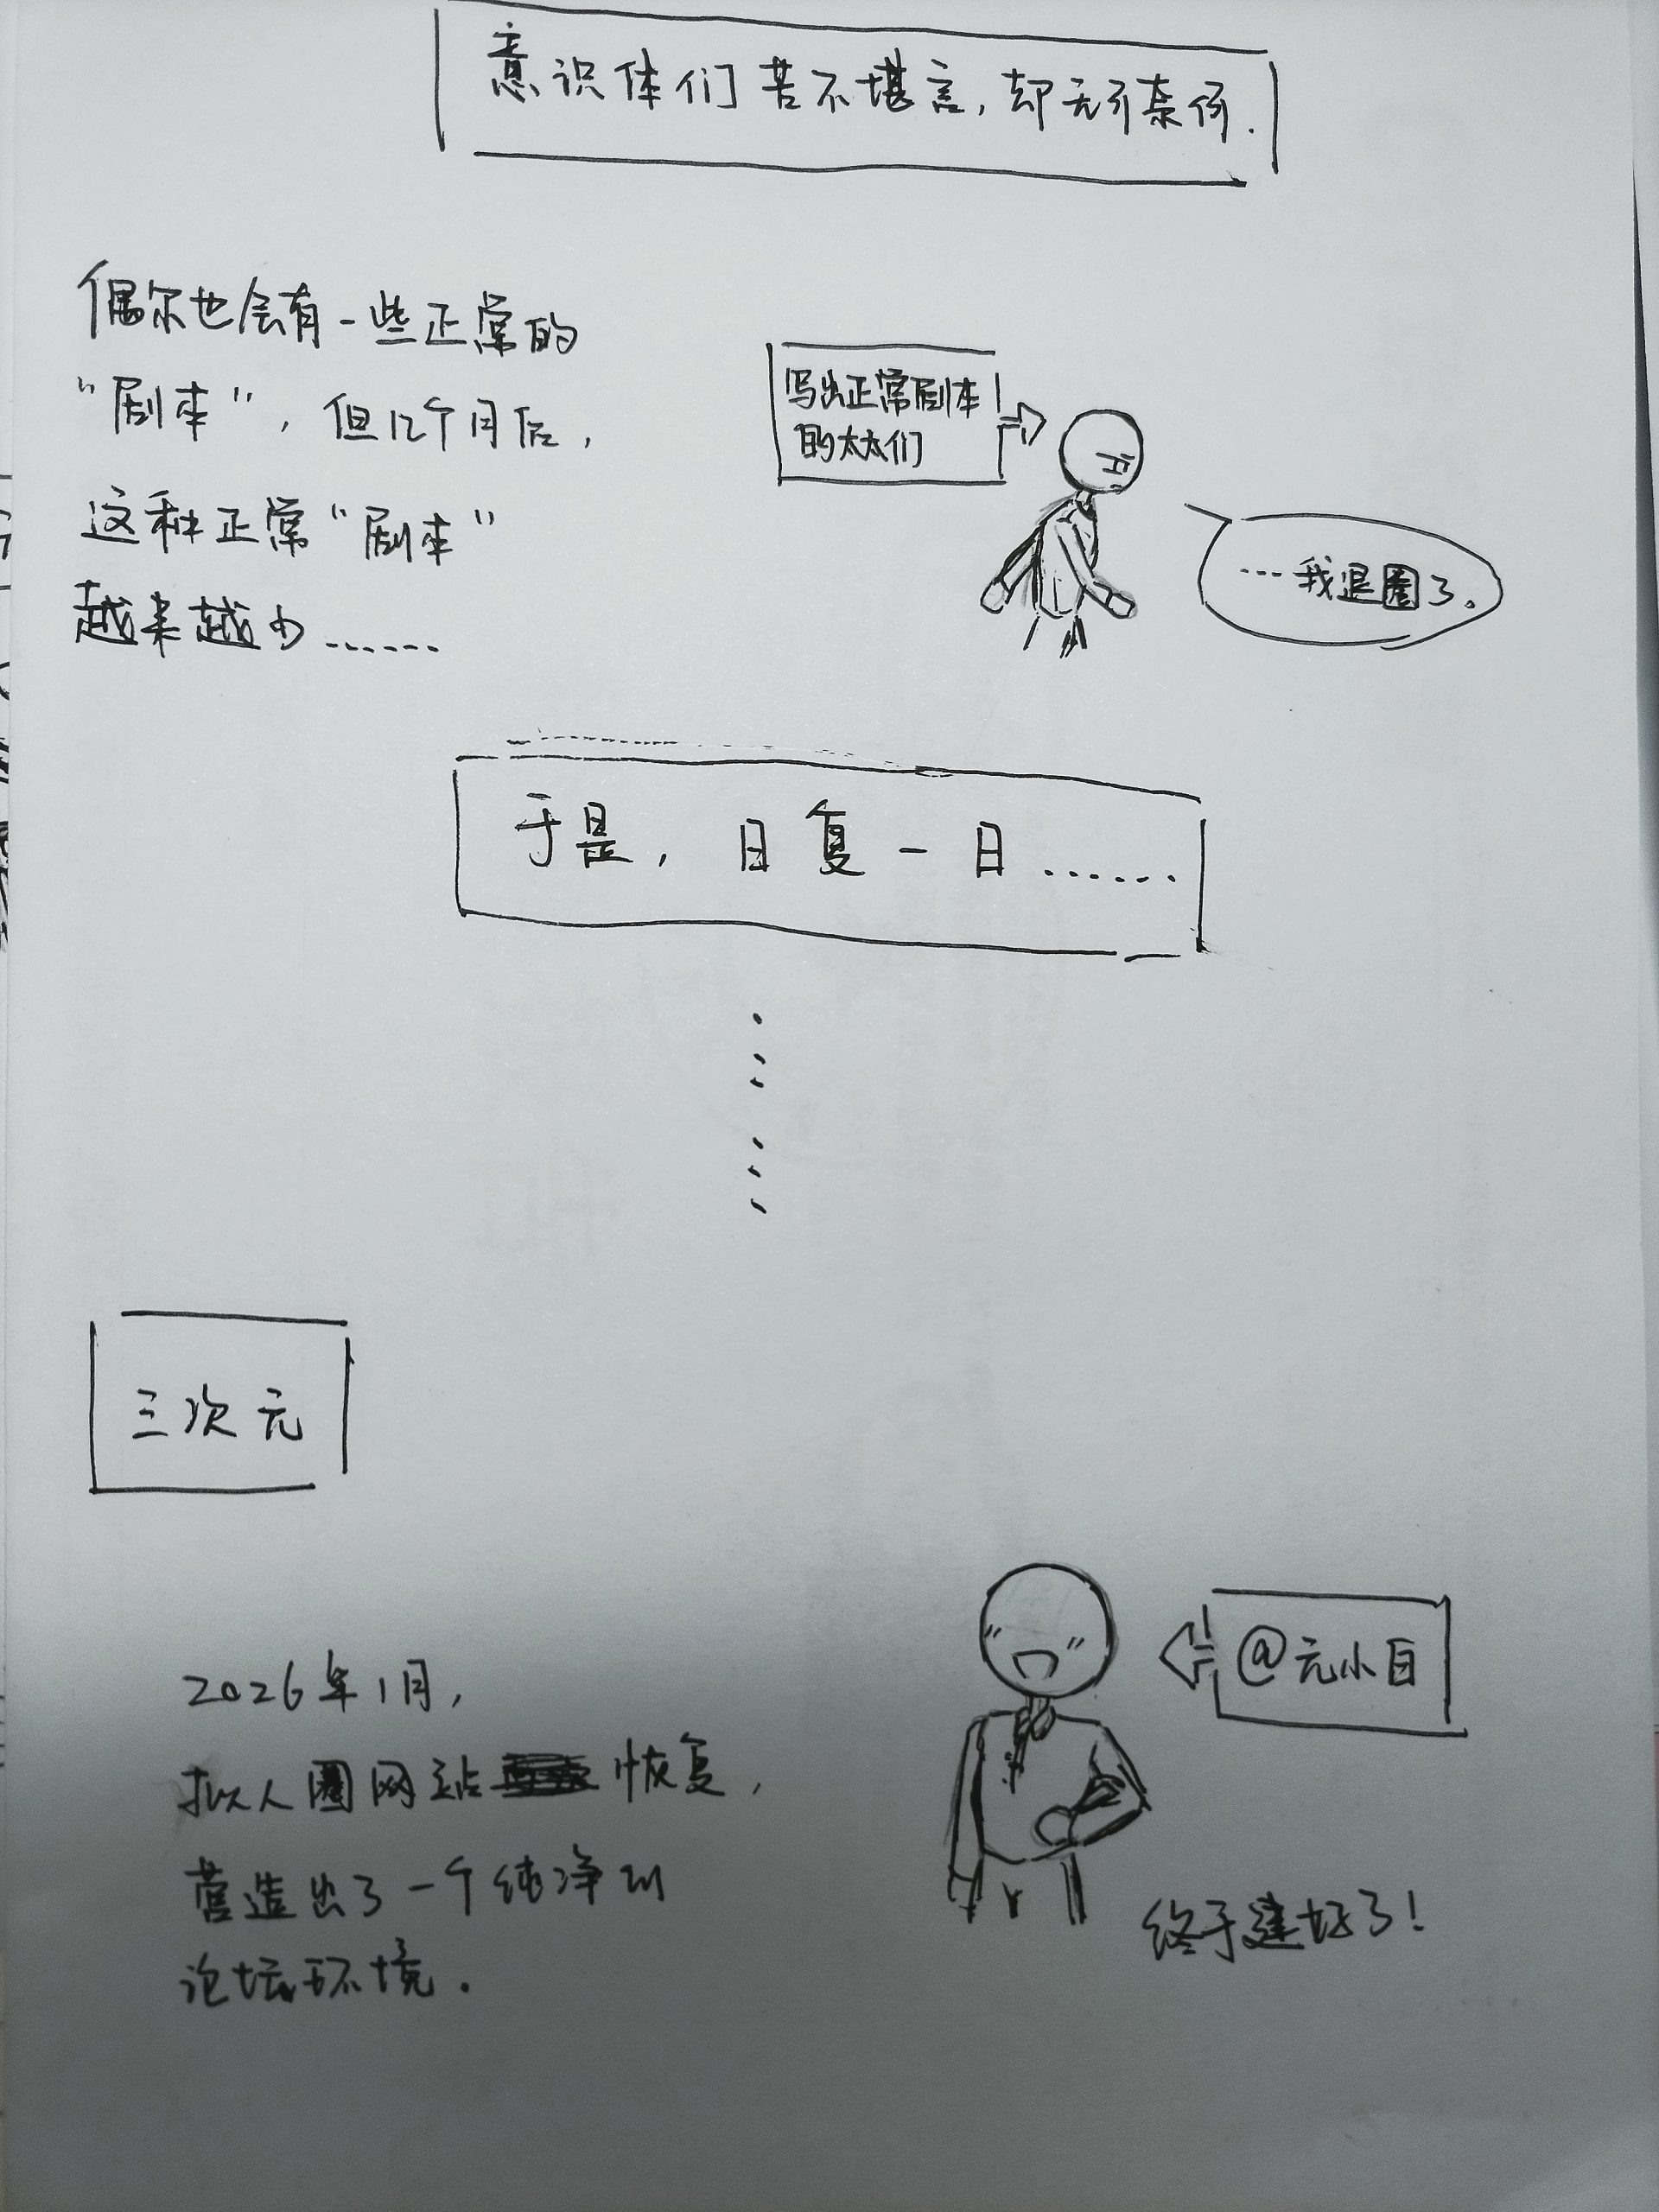 意识体们苦不堪言，却无可奈何.
偶尔也会有一些正常的
“剧本”，但几个月后，
这种正常“剧本”
越来越少……
写出正常剧本
的太太们
…我退圈了。
于是，日复一日……
三次元
2026年1月，
拟人圈网站恢复，
营造出了一个纯净的
论坛环境.
@元小白
终于建好了！